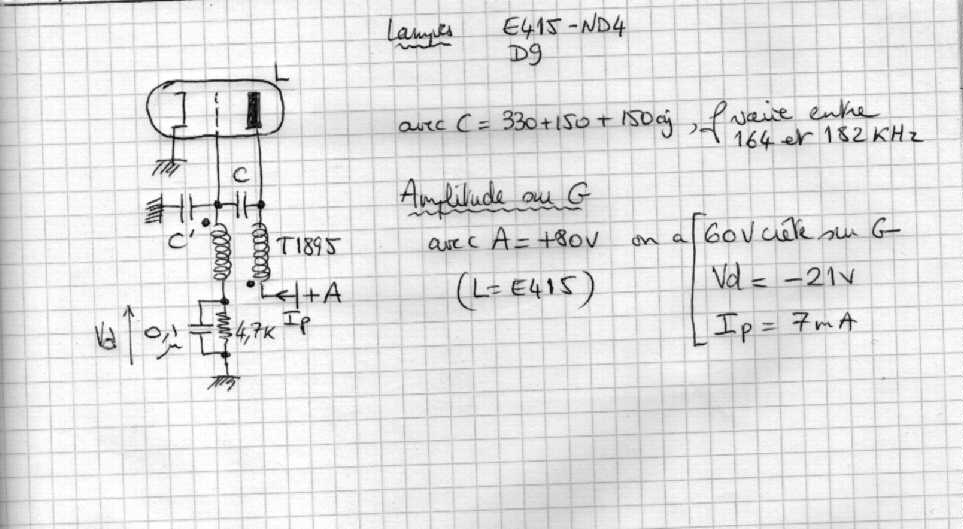 Lampes E415-ND4
D9
L
avec C = 330+150+150aj, f varie entre
164 et 182 KHz
C
Amplitude sur G
C'
T1895
avec A = +80V on a 60V crête sur G
(L = E415)
Vd = -21V
Ip = 7mA
+A
Ip
Vd
0,1
μ
4,7K